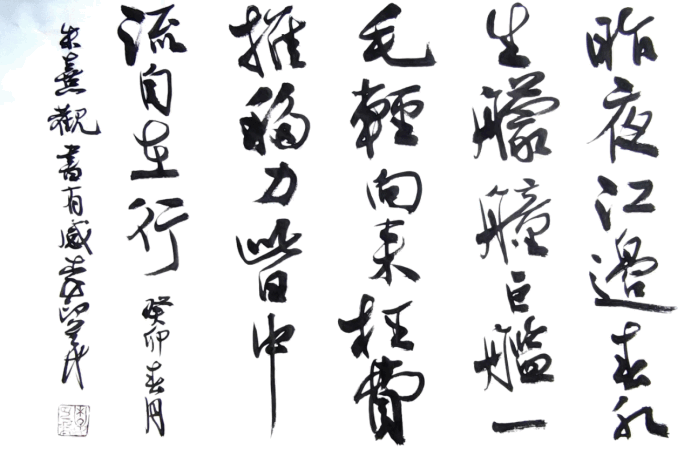 昨夜江邊春水
生艨艟巨艦一
毛輕向来枉費
推移力此日中
流自在行 癸卯春月
朱熹觀書有感